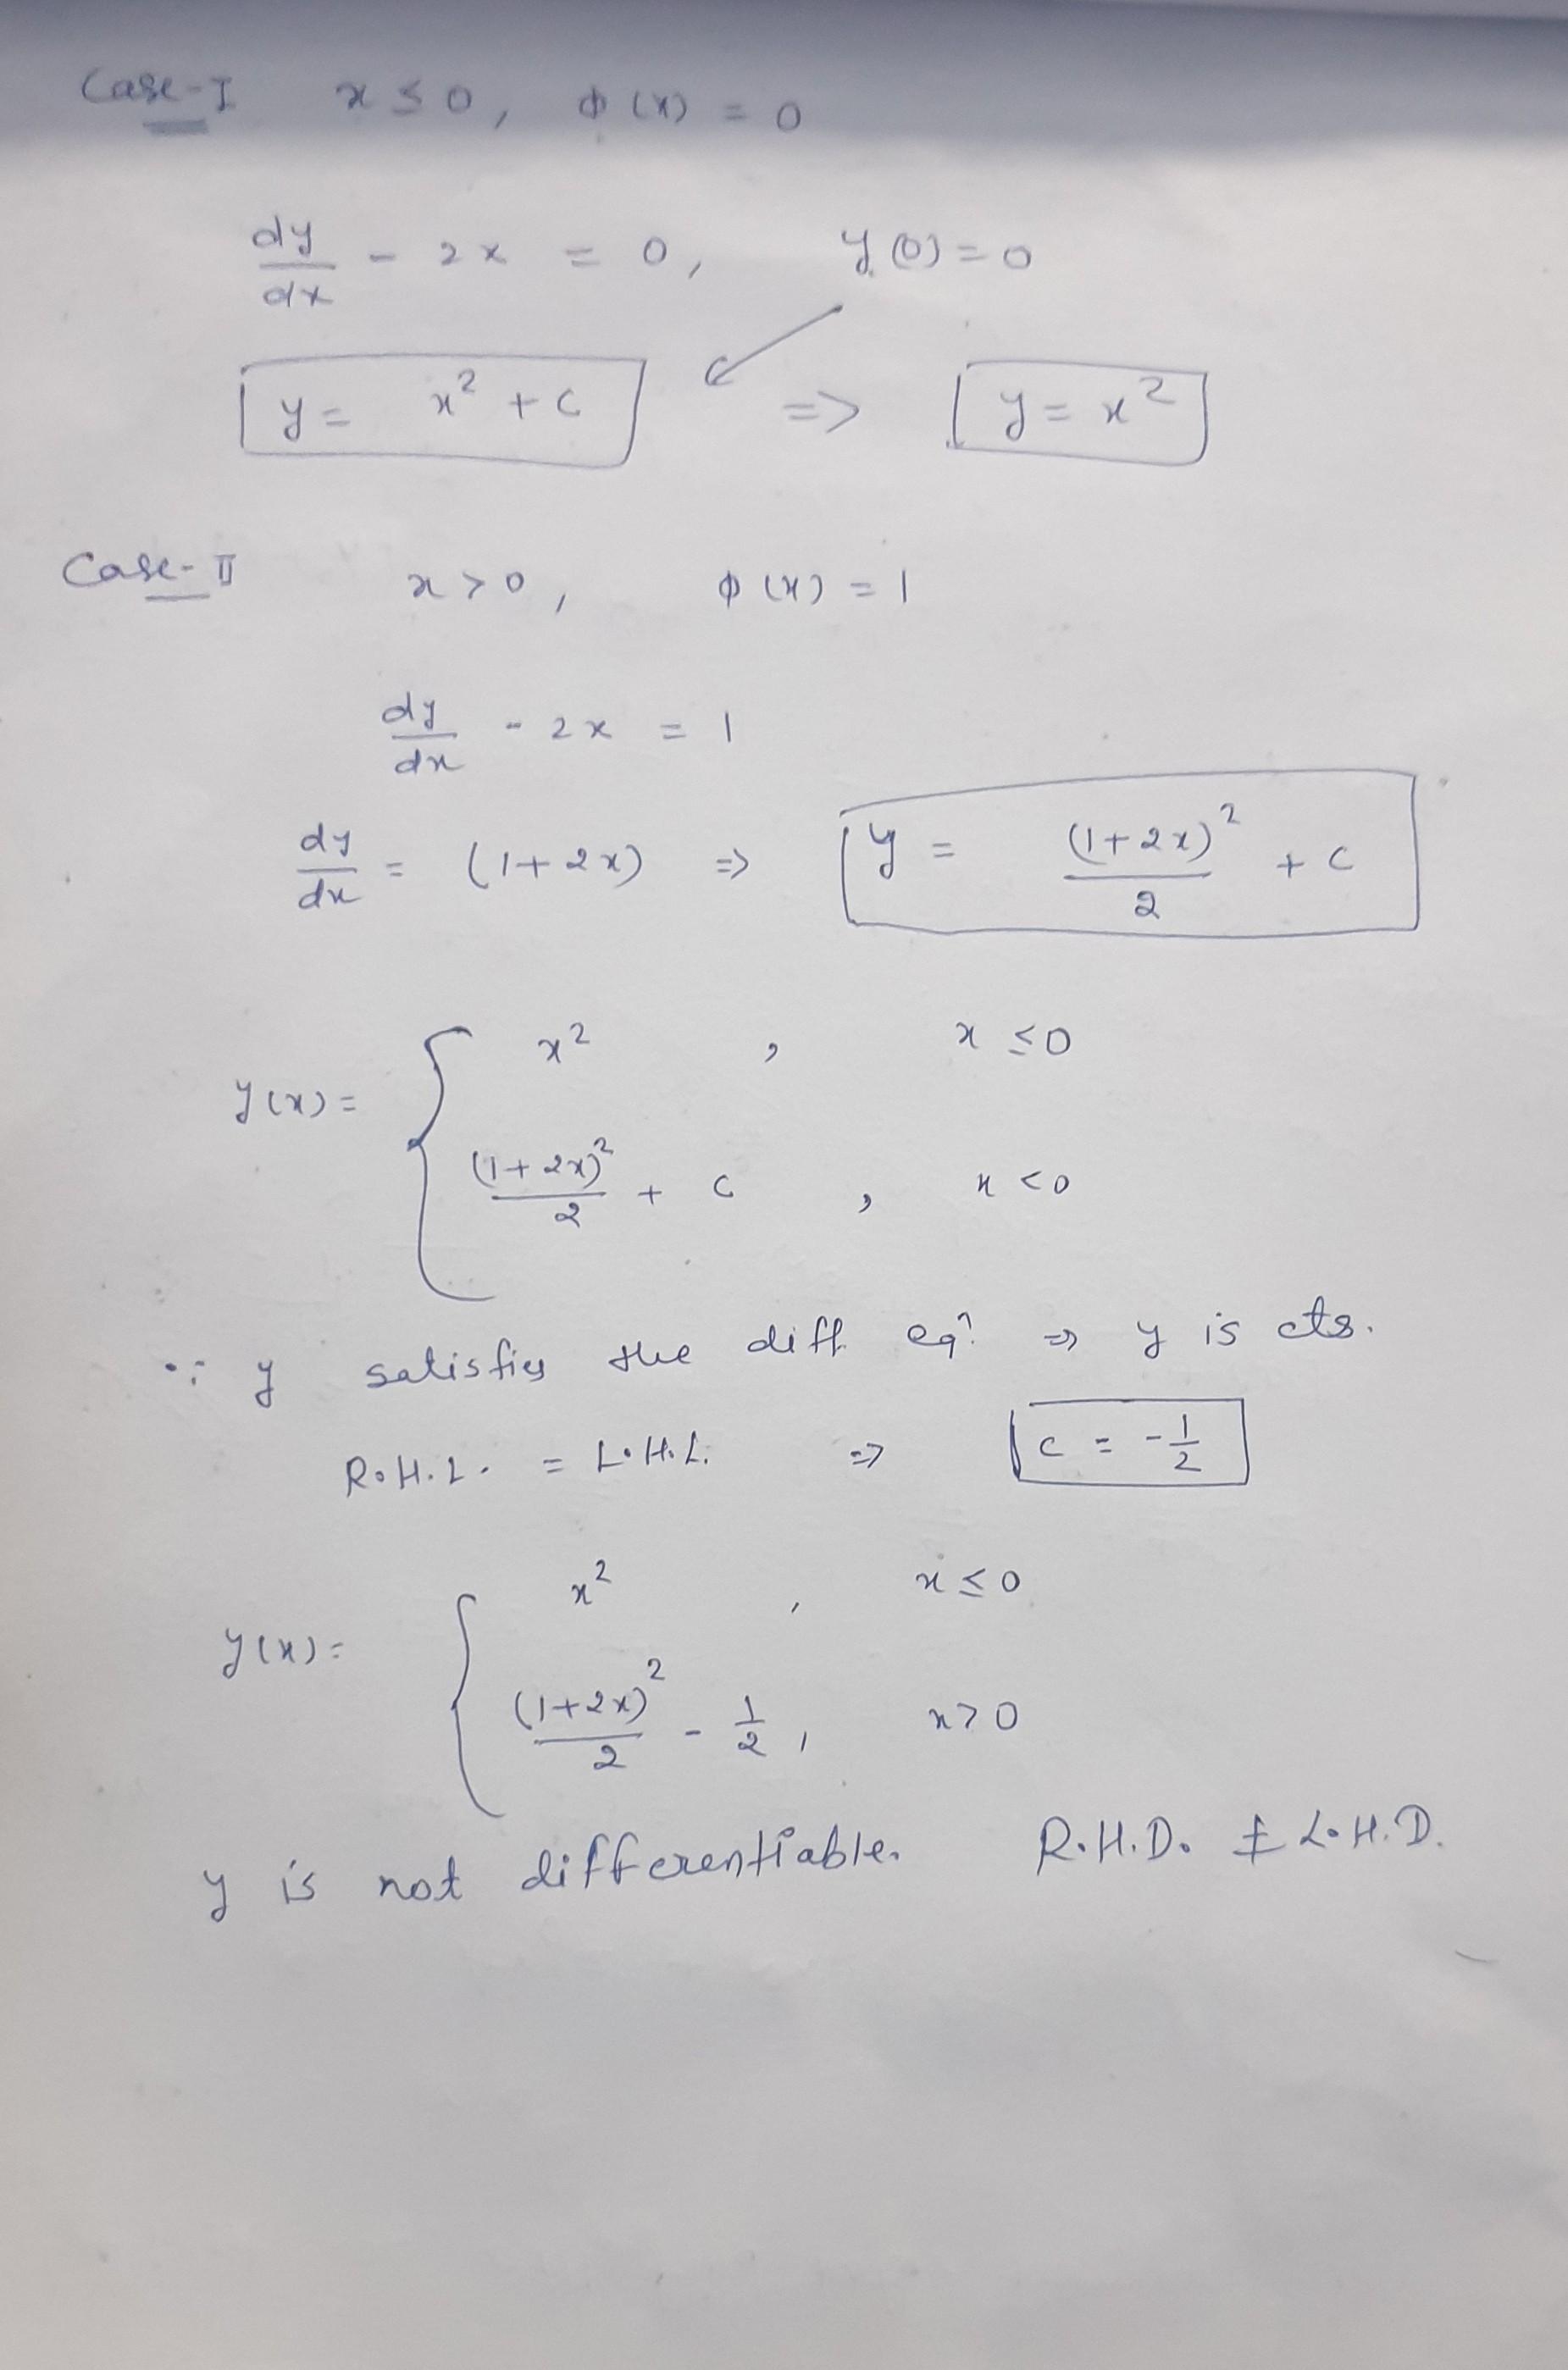 Case-I x ≤ 0, φ(x) = 0
dy/dx - 2x = 0, y(0) = 0
y = x² + c => y = x²
Case-II x > 0, φ(x) = 1
dy/dx - 2x = 1
dy/dx = (1+2x) => y = (1+2x)²/2 + c
y(x) = { x² , x ≤ 0
(1+2x)²/2 + c , x < 0
∵ y satisfies the diff eqⁿ. => y is cts.
R.H.L. = L.H.L. => c = -1/2
y(x) = { x² , x ≤ 0
(1+2x)²/2 - 1/2 , x > 0
y is not differentiable. R.H.D. ≠ L.H.D.